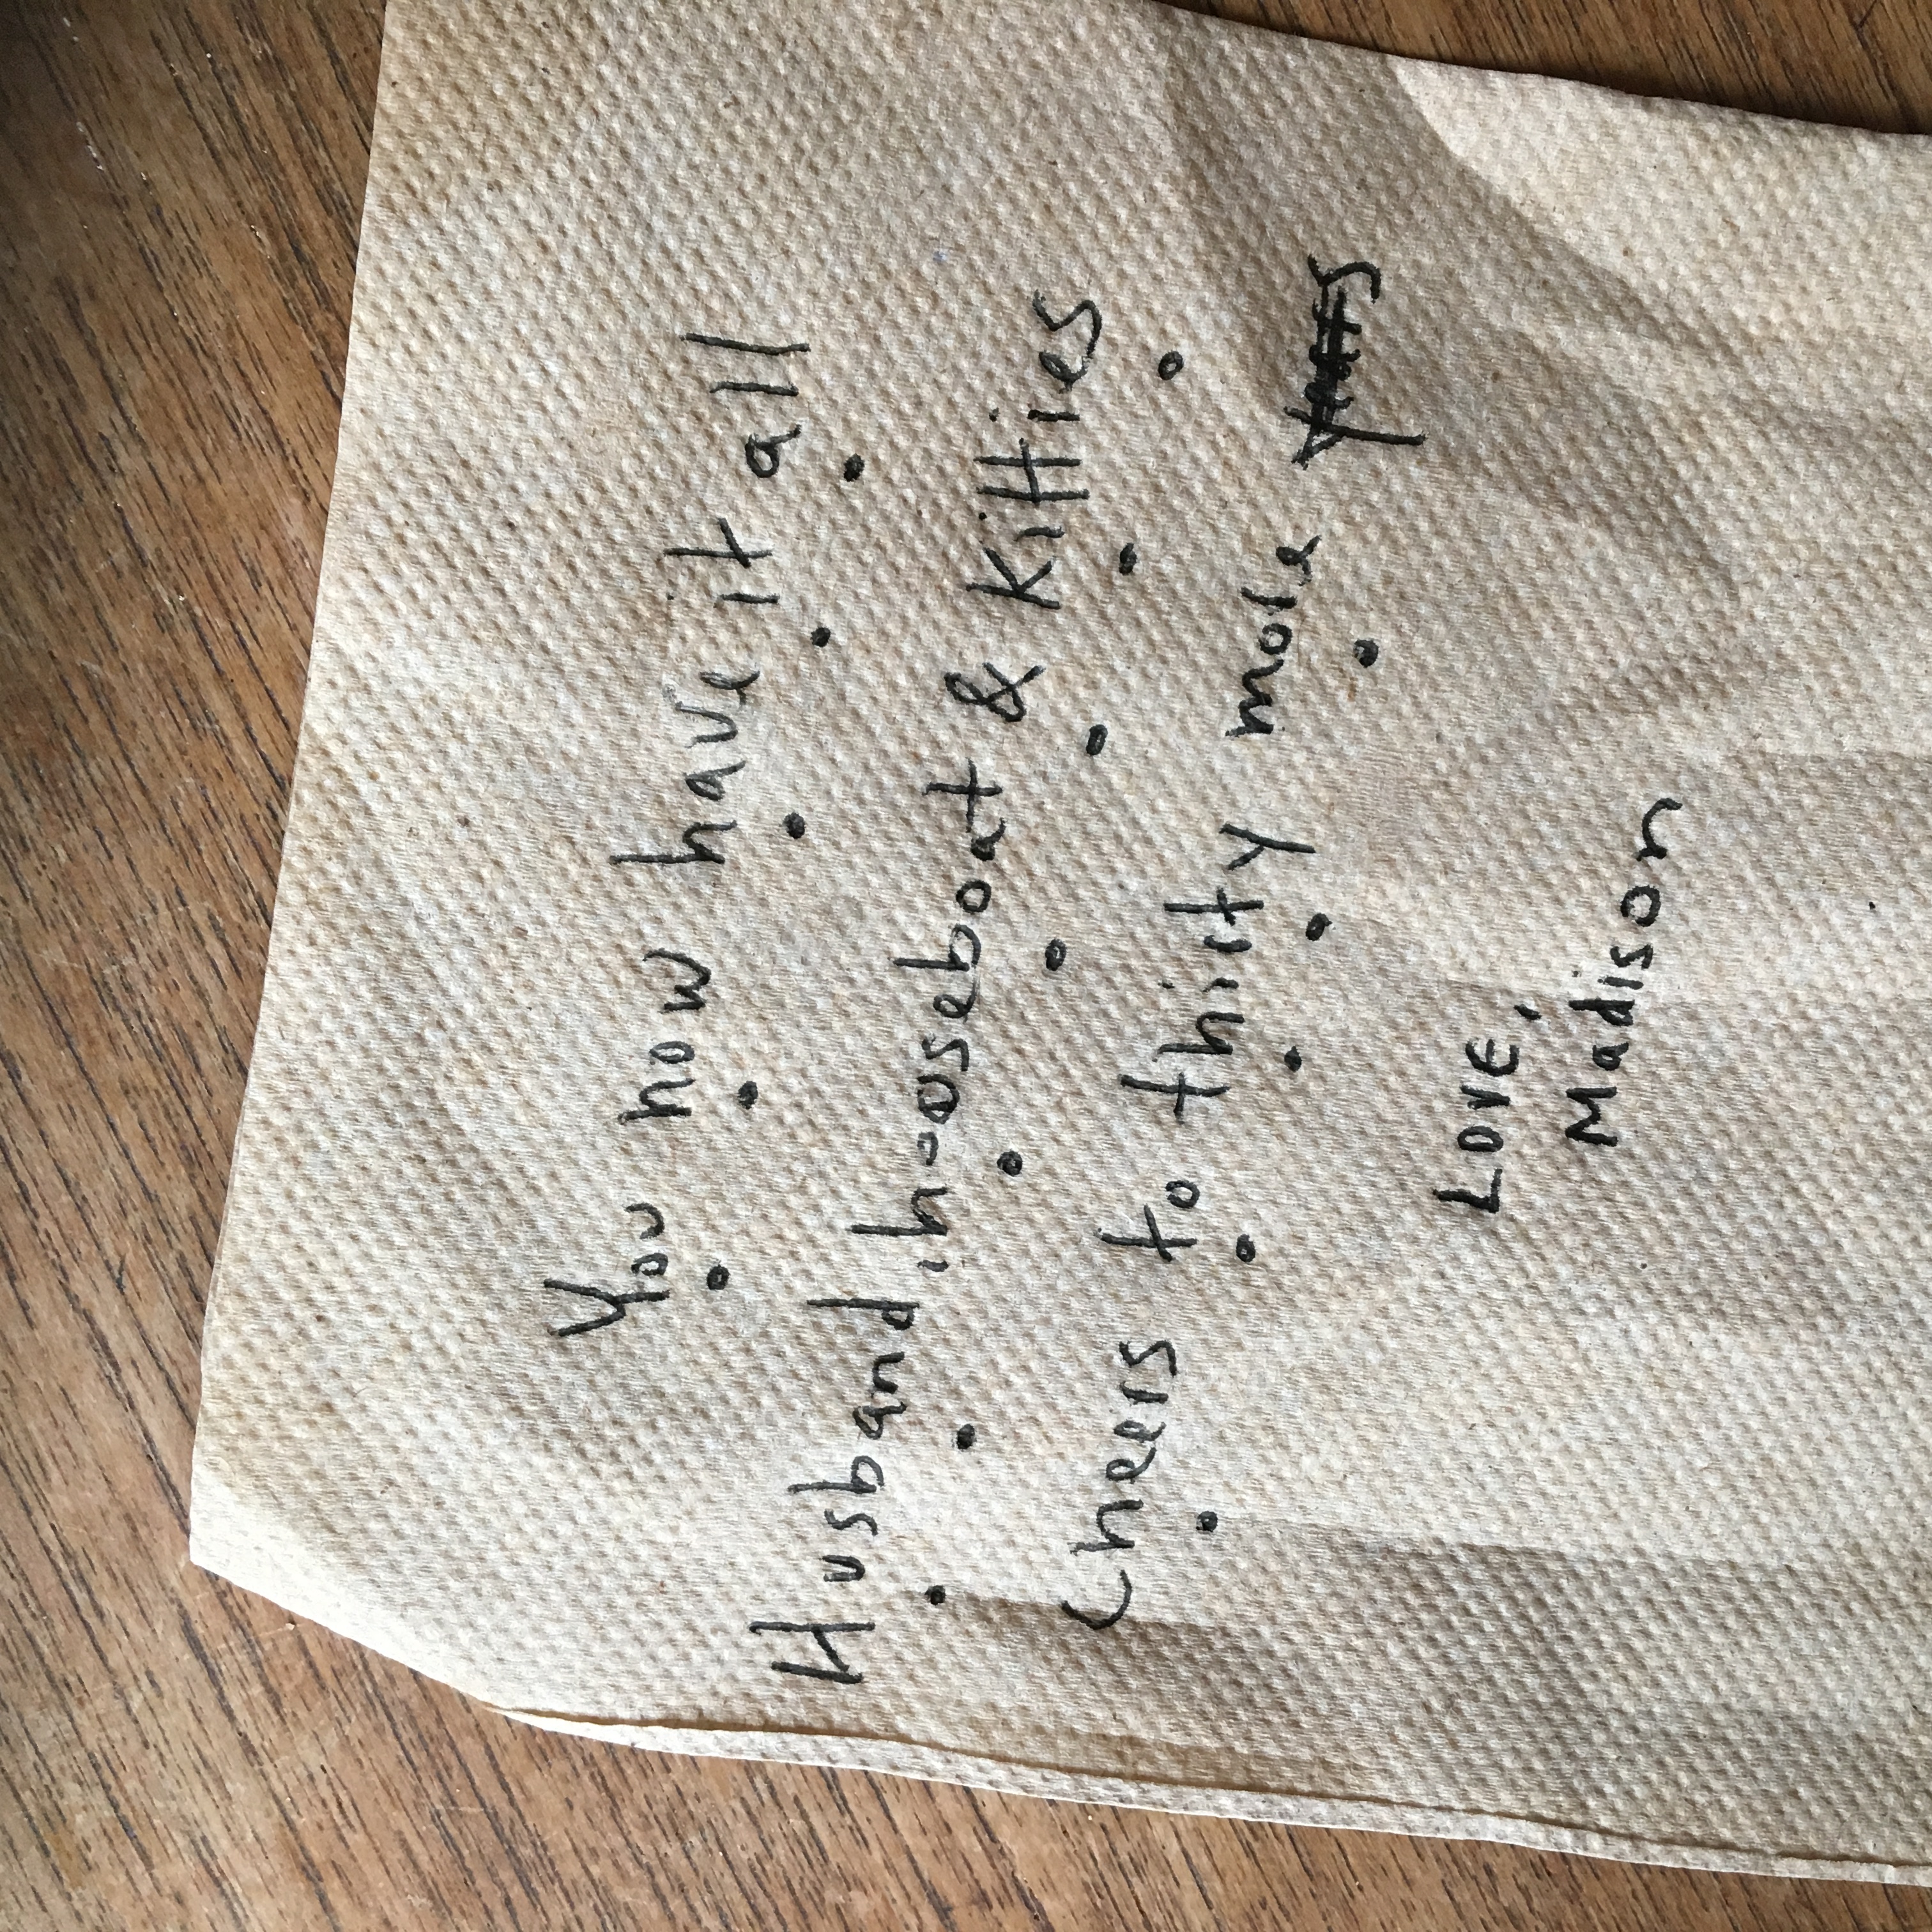 You now have it all
Husband, houseboat & Kitties
Cheers to thirty more years
LOVE,
Madison